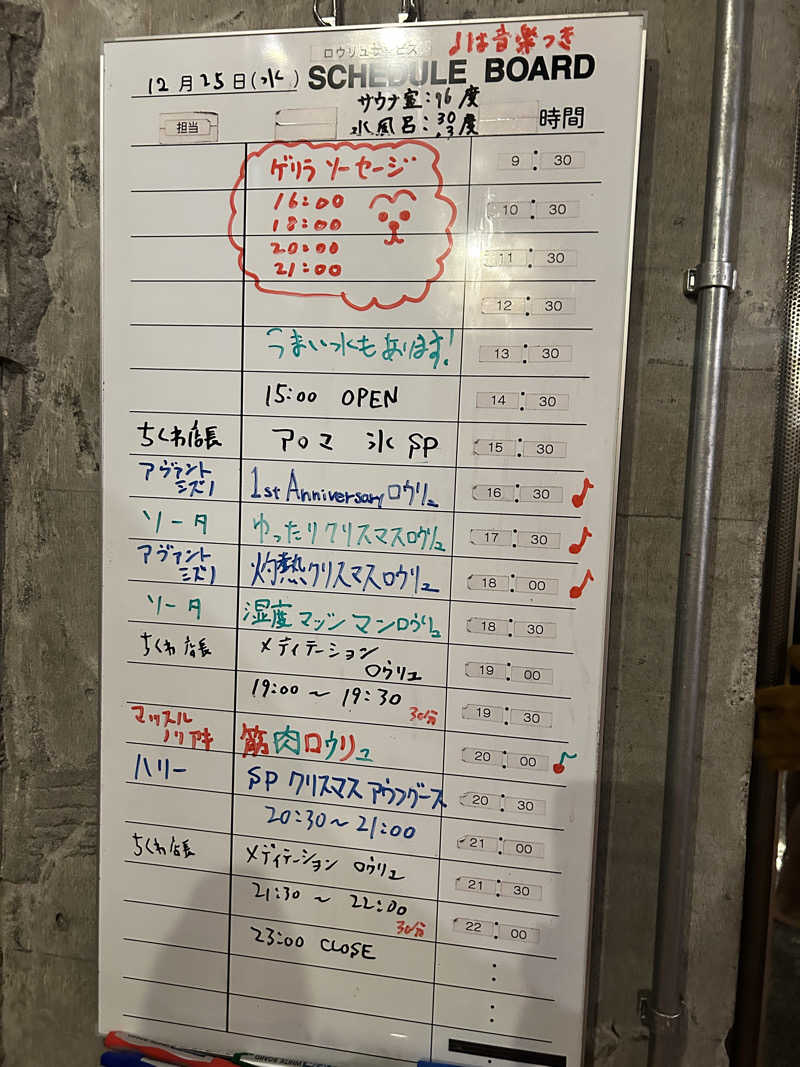 ♪は音楽つき
ロウリュサービス
12月25日(水) SCHEDULE BOARD
サウナ室:96度
水風呂:30 .3度
担当 時間
ゲリラ ソーセージ 9:30
16:00
18:00 10:30
20:00
21:00 11:30
12:30
うまい水もあります! 13:30
15:00 OPEN 14:30
ちくわ店長 アロマ 氷 SP 15:30
アヴァント ミズノ 1st Anniversary ロウリュ 16:30 ♪
ソータ ゆったりクリスマスロウリュ 17:30 ♪
アヴァント ミズノ 灼熱クリスマスロウリュ 18:00 ♪
ソータ 湿度マッシマンロウリュ 18:30
ちくわ店長 メディテーション ロウリュ 19:00
19:00～19:30 30分 19:30
マッスル ノリアキ 筋肉ロウリュ 20:00 ♪
ハリー SP クリスマス アウフグース 20:30
20:30～21:00 21:00
ちくわ店長 メディテーション ロウリュ 21:30
21:30～22:00 30分 22:00
23:00 CLOSE